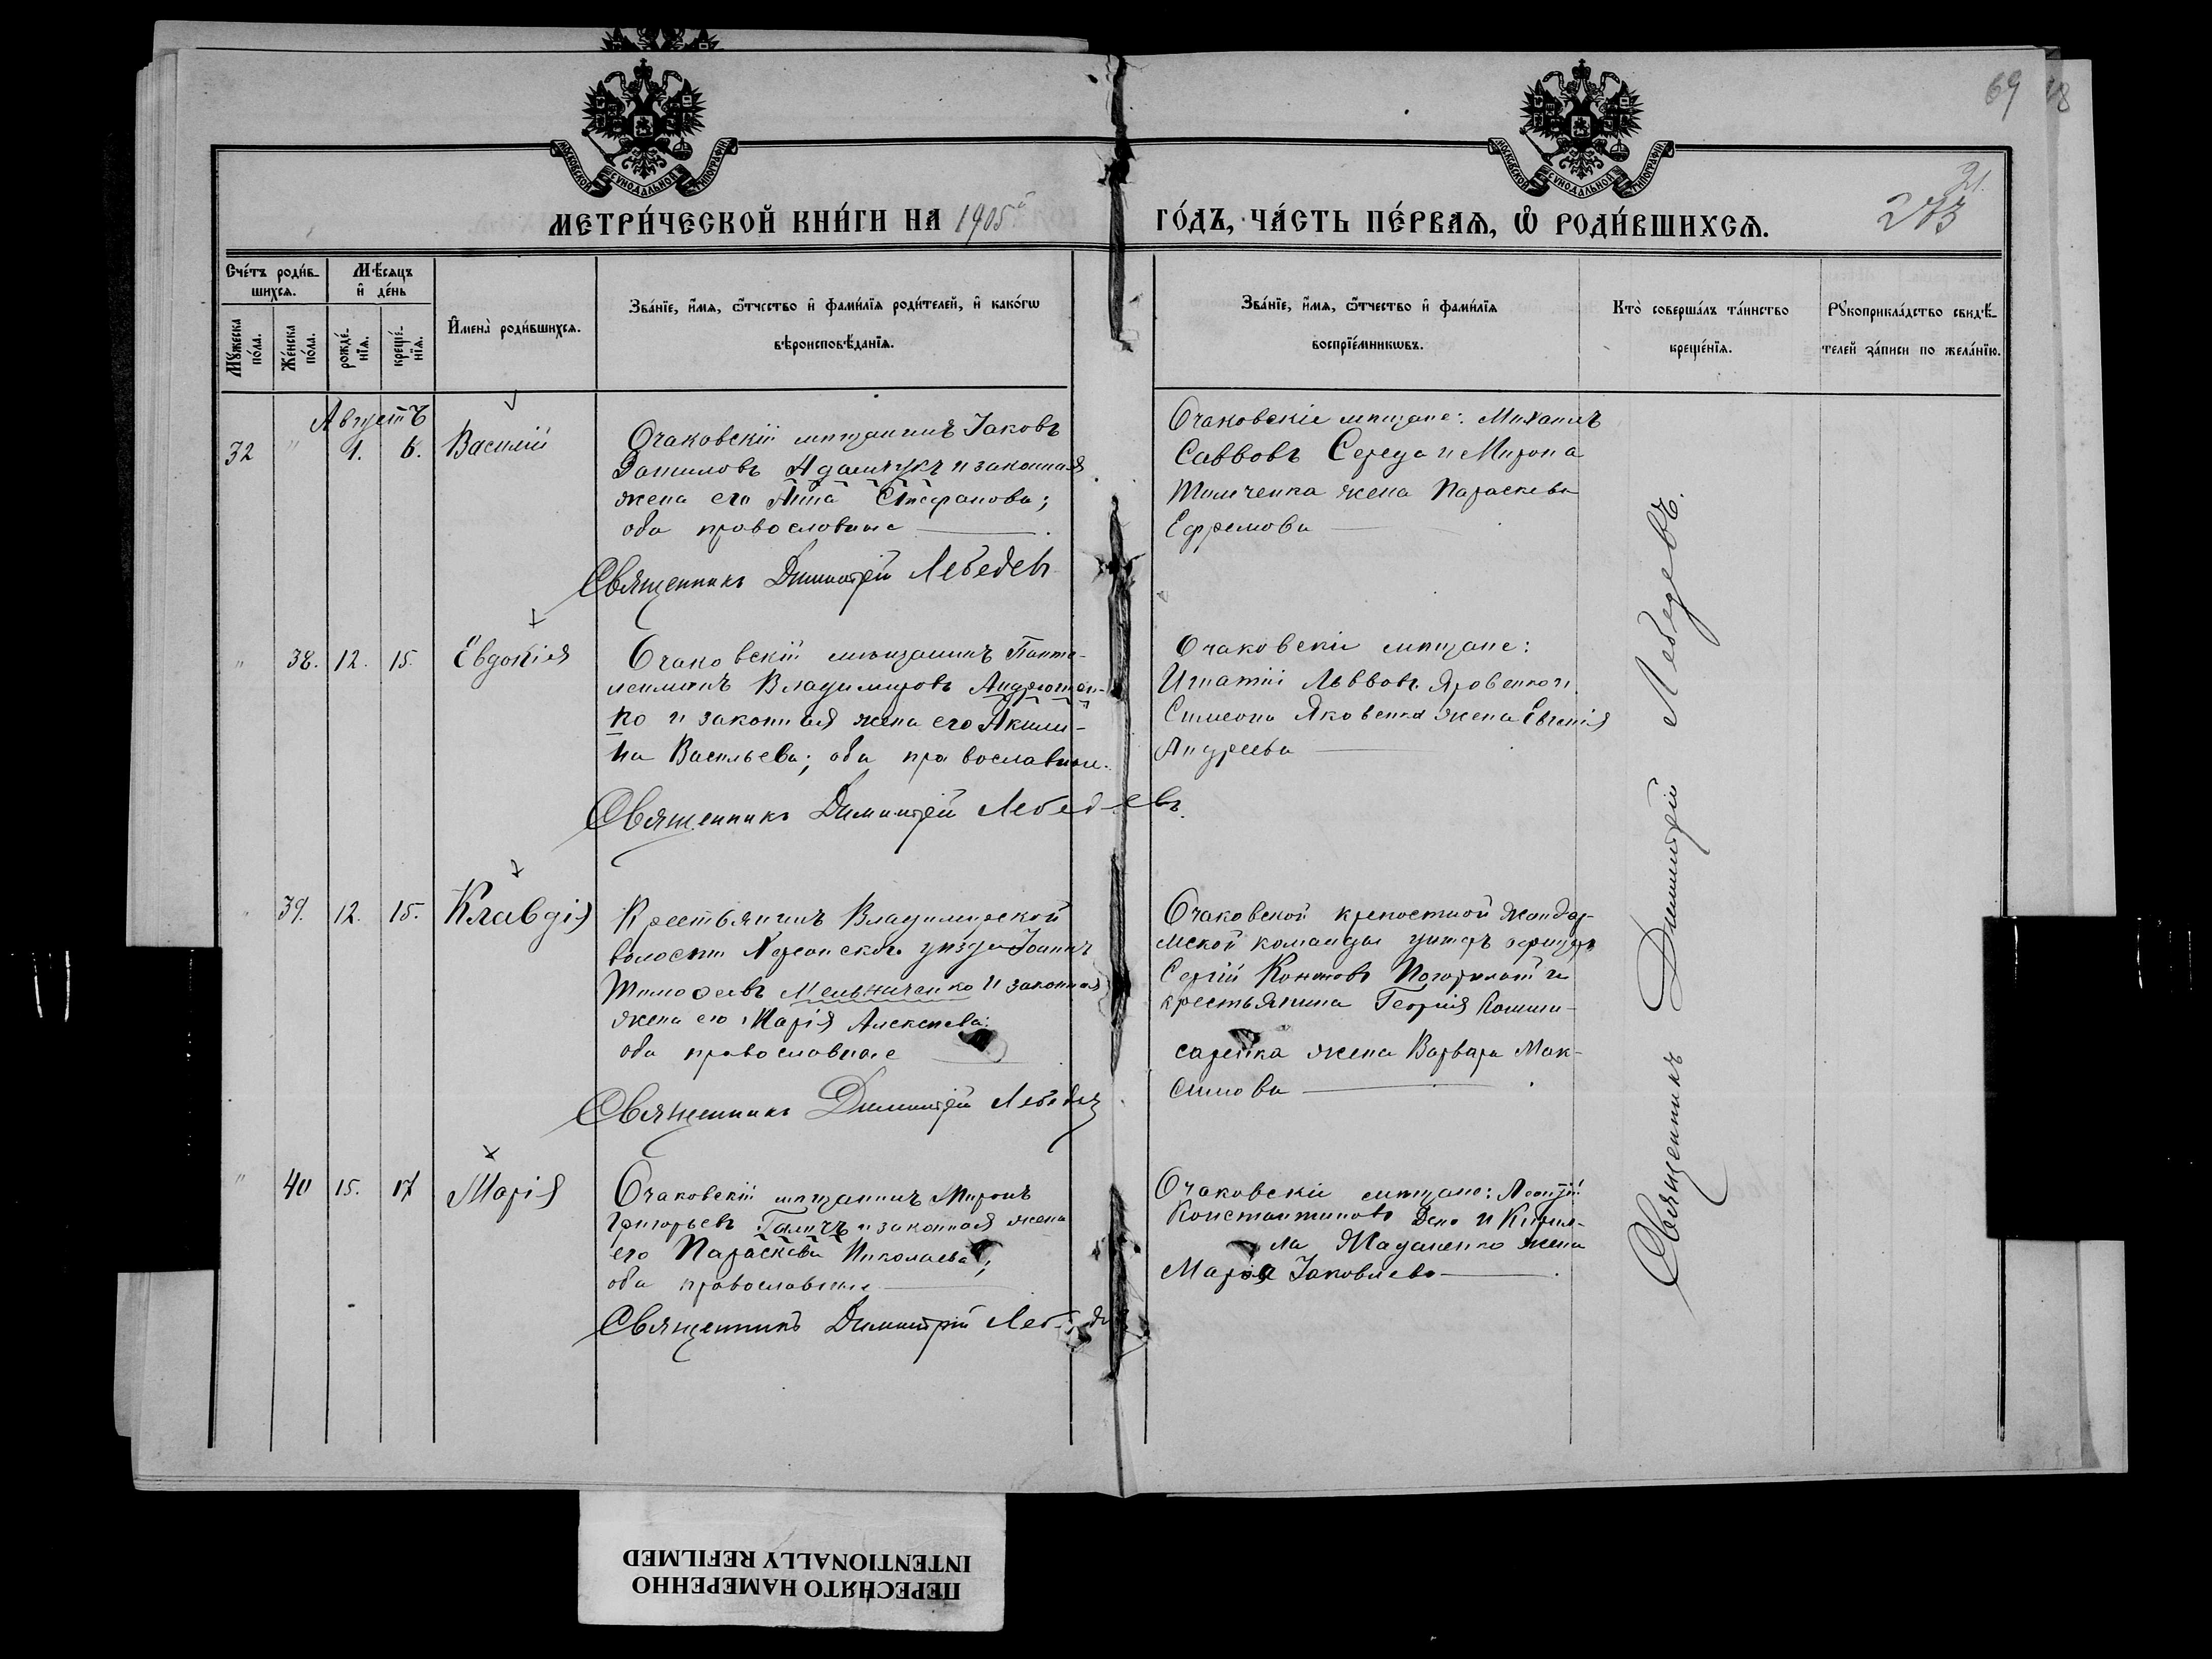 69
21.
273
МОСКОВСКОЙ СѴНОДАЛЬНОЙ ТИПОГРАФІИ
МОСКОВСКОЙ СѴНОДАЛЬНОЙ ТИПОГРАФІИ
МЕТРИ́ЧЕСКОЙ КНИ́ГИ НА 1905й
ГО́ДЪ, ЧА́СТЬ ПЕ́РВАѦ, Ѽ РОДИ́ВШИХСѦ.
Сче́тъ роди́в-
шихсѧ.
Мѣ́сѧцъ
и҆ де́нь
Мꙋ́жеска
по́ла.
Же́нска
по́ла.
рожде́-
нїѧ.
креще́-
нїѧ.
И҆мена̀ роди́вшихсѧ.
Зва́нїе, и҆́мѧ, ѻ҆́тчество и҆ фами́лїѧ роди́телей, и҆ како́гѡ
вѣроисповѣ́данїѧ.
Зва́нїе, и҆́мѧ, ѻ҆́тчество и҆ фами́лїѧ
воспрїе́мникѡвъ.
Кто̀ соверша́лъ та́инство
креще́нїѧ.
Рꙋкоприкла́дство свидѣ́-
телей за́писи по жела́нїю.
Августъ
32 " 1. 6. Василій
Очаковскій мѣщанинъ Іаковъ
Адамчукъ и законная
жена его Анна Стефанова;
оба православные
Священникъ Димитрій Лебедевъ
Очаковскіе мѣщане: Михаилъ
Саввовъ Середа и Мирона
жена Параскева
Ефремова
" 38. 12. 15. Евдокія
Очаковскій мѣщанинъ Панте-
леимонъ Владимировъ Андрющен-
ко и законная жена его Акили-
на Васильева; оба православные.
Священникъ Димитрій Лебедевъ.
Очаковскіе мѣщане:
Игнатій Львовъ Яровенко и
Симеона Яковенка жена Евгенія
Андреева
" 39. 12. 15. Клавдія
Крестьянинъ Владимирской
волости Херсонскаго уѣзда Іоаннъ
Тимофеевъ Мельниченко и законная
жена его Марія Алексѣева:
оба православные
Священникъ Димитрій Лебедевъ
Очаковской крепостной жандар-
мской команды унтеръ офицеръ
Сергій Кононовъ и
крестьянина Георгія Комми-
саренка жена Варвара Мак-
симова
" 40 15. 17 Марія
Очаковскій мѣщанинъ Миронъ
Григорьевъ Галичъ и законная жена
его Параскева Николаева;
оба православные
Священникъ Димитрій Лебедевъ
Очаковскіе мѣщане: Леонтій
Константиновъ и Кирил-
ла жена
Марія Іаковлева
Священникъ Димитрій Лебедевъ.
ПЕРЕСНЯТО НАМЕРЕННО
INTENTIONALLY REFILMED